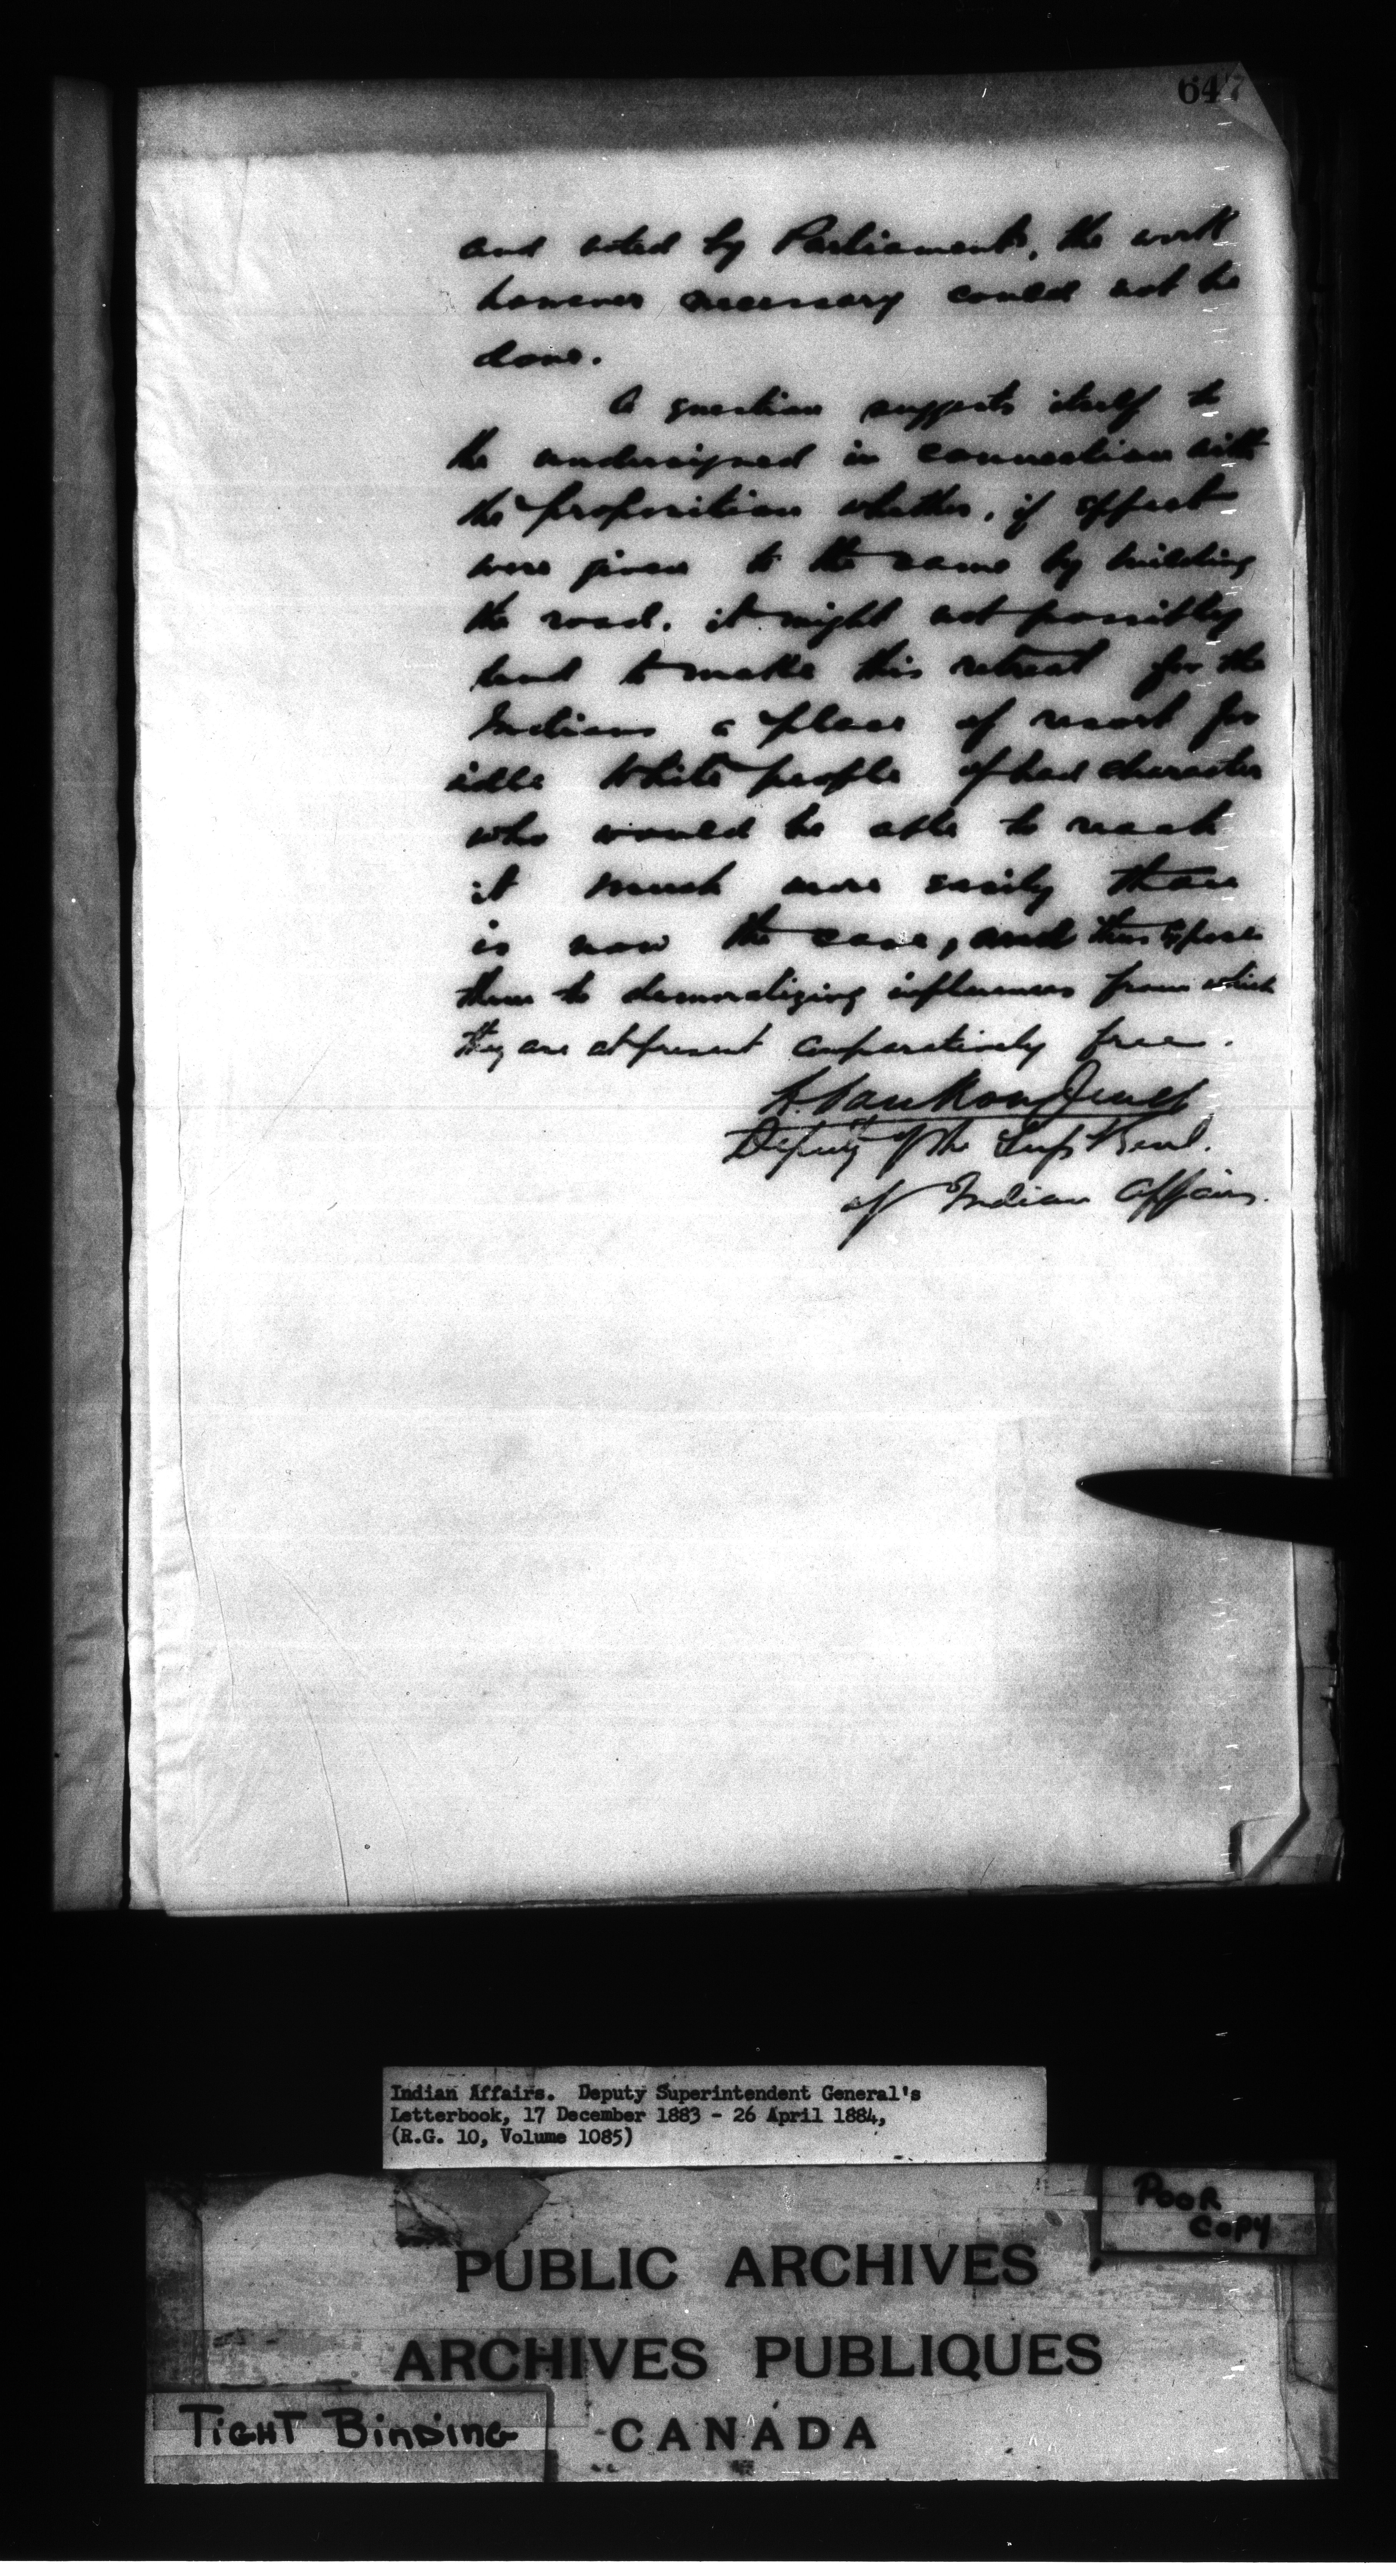 647
and voted by Parliament, the work
however necessary could not be
done.
A question suggests itself to
the undersigned in connection with
the proposition whether, if effect
were given to the same by building
the road, it might not possibly
tend to make this retreat for the
Indians a place of resort for
idle White people of bad character
who would be able to reach
it much more easily than
is now the case, and thus expose
them to demoralizing influences from which
they are at present comparatively free.
L. VanKoughnet
Deputy of the Supt Genl.
of Indian Affairs.
Indian Affairs. Deputy Superintendent General's
Letterbook, 17 December 1883 - 26 April 1884,
(R.G. 10, Volume 1085)
POOR
COPY
PUBLIC ARCHIVES
ARCHIVES PUBLIQUES
CANADA
TIGHT BINDING